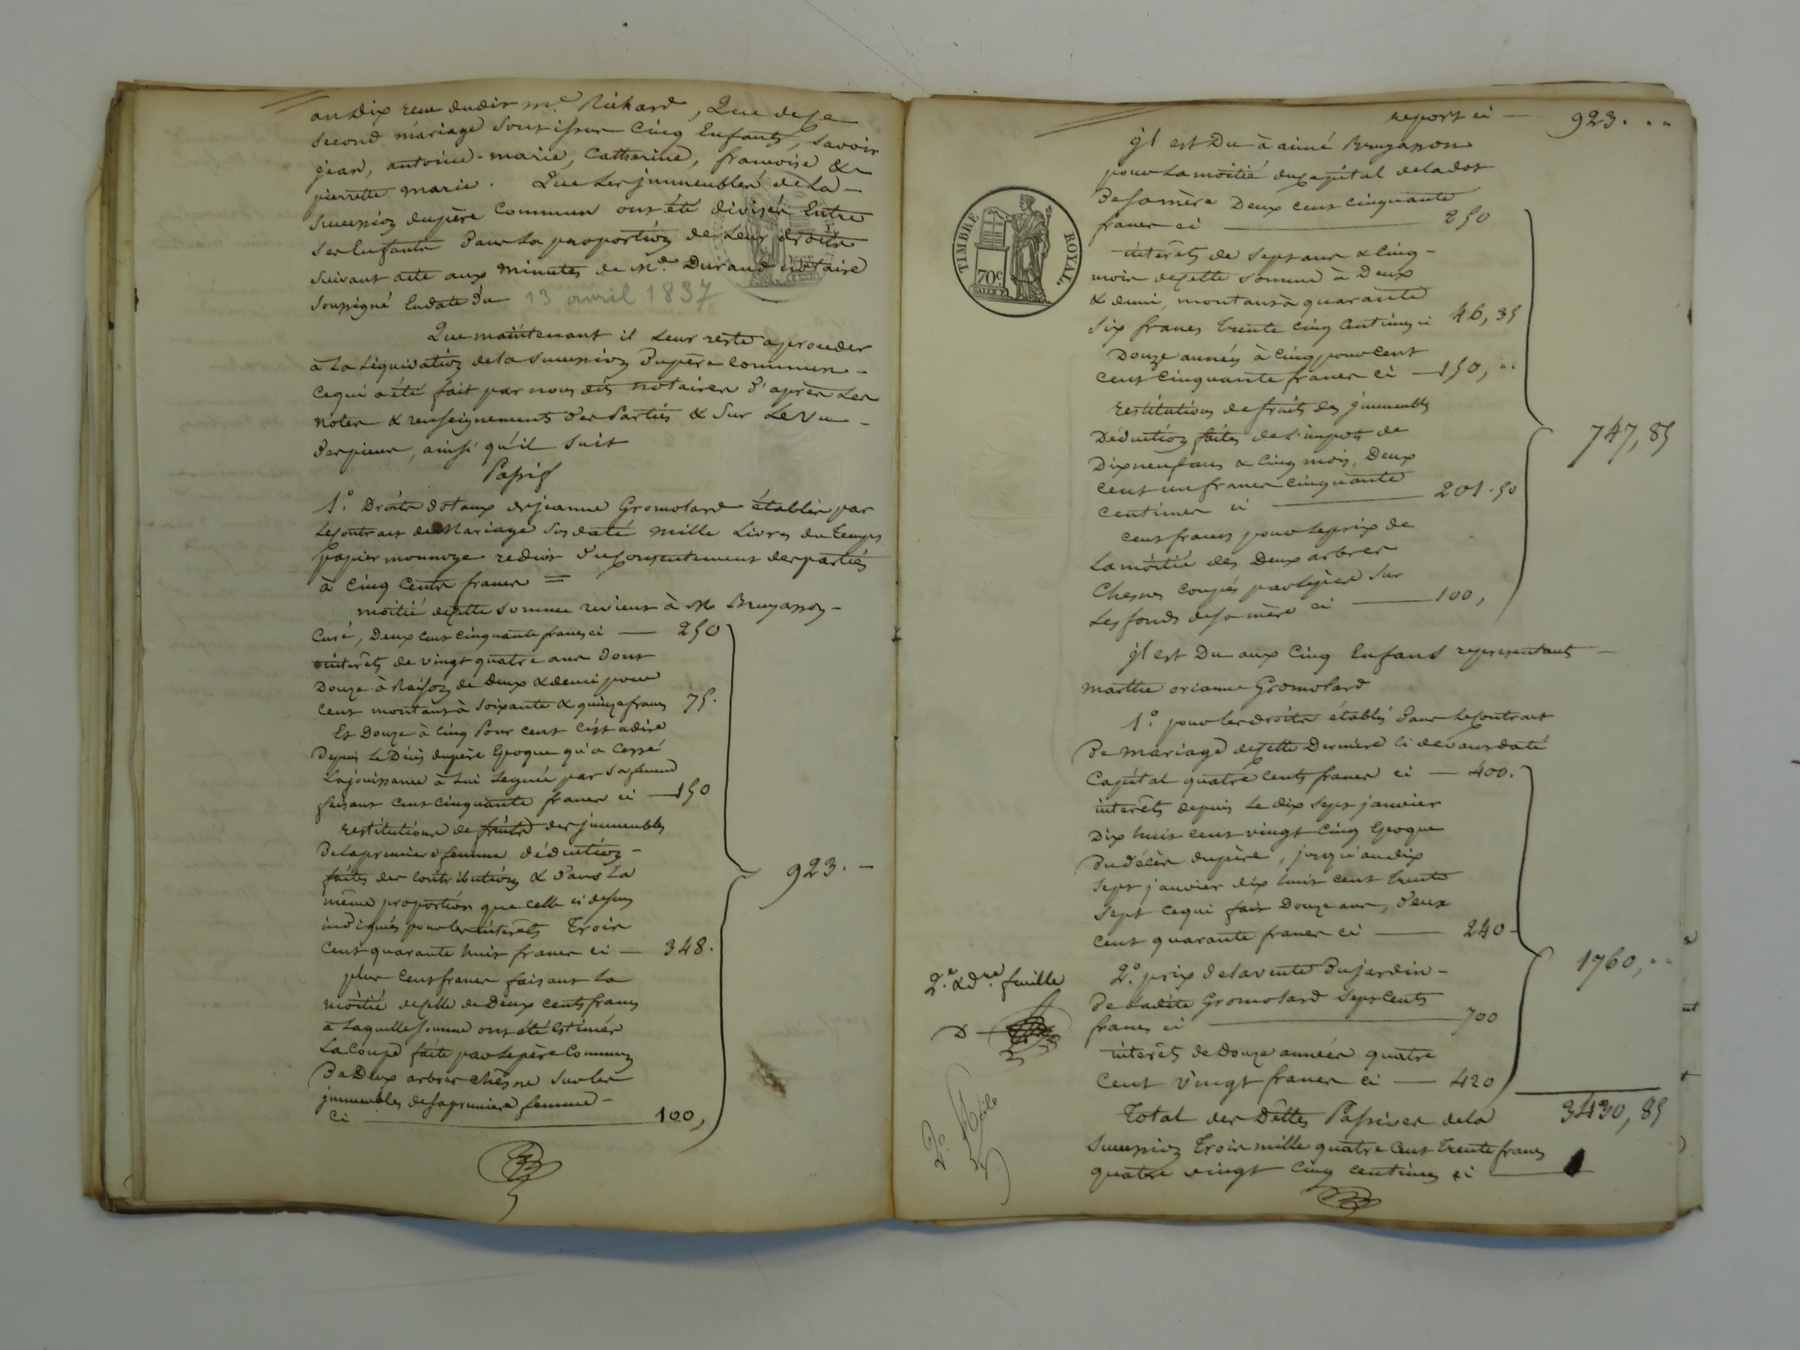 an dix reçu dudit me. Richard, Que de ce
second mariage sont issus Cinq Enfants, savoir
jean, antoine-marie, Catherine, françoise &
pierrette marie. Que les jmmeubles de la
succession dupère Commun ont été divisés Entre
ses Enfants dans La proportion de Leurs droits
suivant acte aux minutes de Me. Durand notaire
soussigné En date du 13 avril 1837
Que maintenant il Leur reste a proceder
à La Liquidation de la succession Dupère Commun
Ce qui a été fait par nous dits notaires d'après Les
notes & renseignements des Parties & sur Le Vu
des pieces, ainsi qu'il suit
Passif
1.° Droits dotaux de jeanne Gromolard établis par
Le Contrat de Mariage sus daté mille Livres du temps
papier monnoye reduit du Consentement des parties
à Cinq Cents francs =
moitié de cette somme revient à M Bruyasson
Curé, Deux cent cinquante francs ci — 250
interêts de vingt quatre ans dont
Douze à Raison de deux & demi pour
Cent montant à soixante & quinze francs 75.
Et Douze à cinq Pour cent C'est adire
Depuis Le Décès dupère Epoque qu'a Cessé
La jouissance à Lui Leguée par sa femme
faisant cent cinquante francs ci — 150
restitutions de fruits des jmmeubles
De la premiere femme déduction
faites des Contributions & dans La
même proportion que celle ci dessus
indiquée pour les interêts Trois
Cent quarante huit francs ci — 348.
plus Cent francs faisant La
moitié de celle de Deux cents francs
a Laquelle somme ont été Estimés
La Coupe faite par Le père Commun
De Deux arbres chêne sur les
jmmeubles de sa premiere femme
Ci — 100,
923. —
report ci — 923. ..
jl est Du à aimé Bruyasson
pour La moitié du Capital de la dot
De sa mère Deux cent cinquante
francs ci — 250
interêts de sept ans & cinq
mois de cette somme à Deux
& demi, montant à quarante
six francs trente cinq Centimes ci 46, 35
Douze années à cinq pour cent
cent cinquante francs ci — 150, ..
restitutions de fruits des jmmeubles
Déduction faites de l'impots de
Dix neuf ans & cinq mois, Deux
cent un francs cinquante
centimes ci — 201.50
cent francs pour Le prix de
La moitié des Deux arbres
Chesnes coupés par Le père sur
Les fonds de sa mère ci — 100,
747, 85
TIMBRE ROYAL.
70c
jl est Du aux Cinq Enfans representants
marthe orianne Gromolard
1.° pour les droits établis Dans Le Contrat
De mariage de cette Derniere Ci devant daté
Capital quatre cents francs ci — 400.
interêts depuis Le dix sept janvier
Dix huit cent vingt cinq Epoque
Du décès dupère, jusqu'au dix
sept janvier dix huit cent trente
sept ce qui fait Douze ans, deux
cent quarante francs ci — 240
2.° prix de la vente Du jardin
De Ladite Gromolard sept Cents
francs ci — 700
interêts de Douze années quatre
Cent vingt francs ci — 420
1760, ..
2.e & dre. feuille
Total des Dettes Passives de la 3430, 85
succession Trois mille quatre Cent Trente francs
quatre vingt Cinq centimes ci —